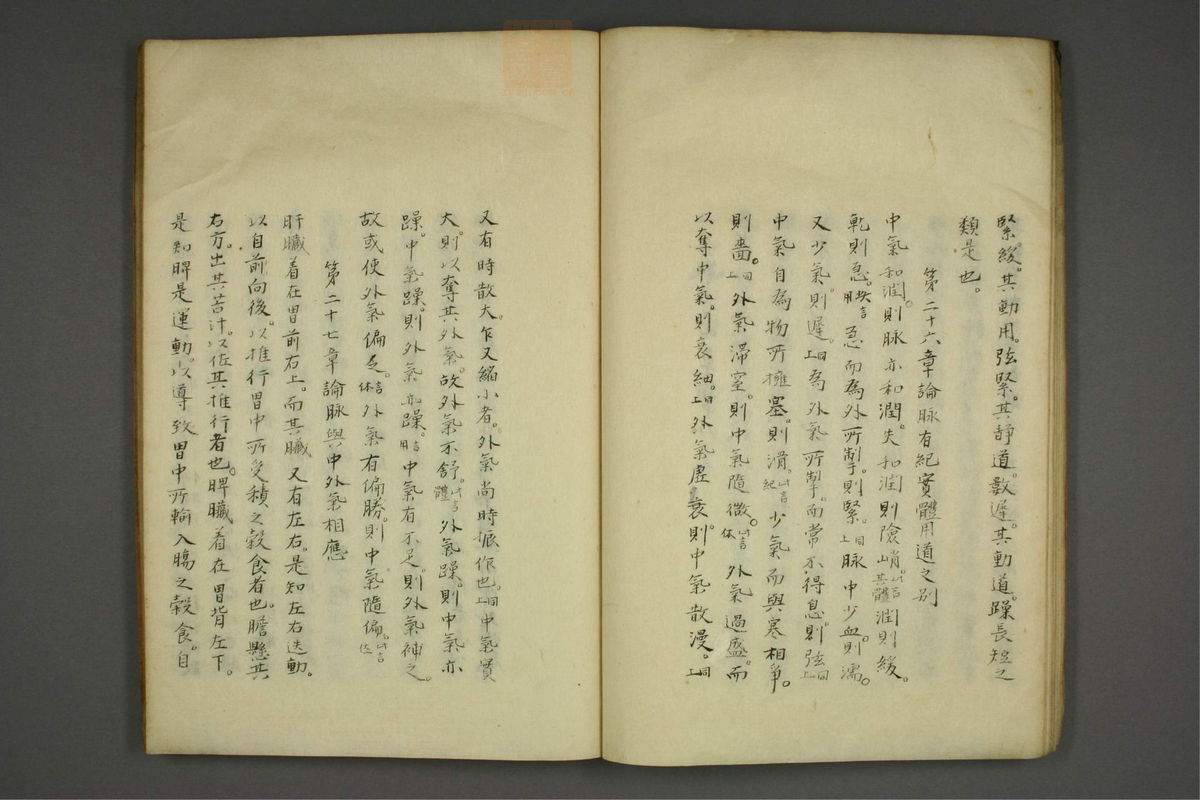 緊緩。其動用。弦緊。其靜道。數遲。其動道。躁長短之
類是也。
第二十六章論脉有紀實體用道之別
中氣和潤。則脉亦和潤。失和潤則險峭。此言其體潤則緩。
乾則急。此言用急而為外所制。則緊。同上脉中少血。則濡。
又少氣。則遲。同上為外氣所掣。而常不得息。則弦。同上
中氣自為物所擁塞。則滑。此言紀少氣而與寒相爭。
則嗇。同上外氣滯窒。則中氣隨微。此言体外氣過盛。而
以奪中氣。則衰細。同上外氣虛衰。則中氣散漫。同上
又有時散大。乍又縮小者。外氣尚時振作也。同上中氣實
大。則以奪其外氣。故外氣不舒。此言體外氣躁。則中氣亦
躁。中氣躁。則外氣亦躁。此言用中氣有不足。則外氣補之。
故或使外氣偏乏。言体外氣有偏勝。則中氣隨偏。此言体
第二十七章論脉與中外氣相應
肝臟着在胃前右上。而其臟又有左右。是知左右迭動。
以自前向後。以推行胃中所受積之穀食者也。膽懸其
右方。出其苦汁。以佐其推行者也。脾臟着在胃背左下。
是知脾是運動。以導致胃中所輸入腸之穀食。自